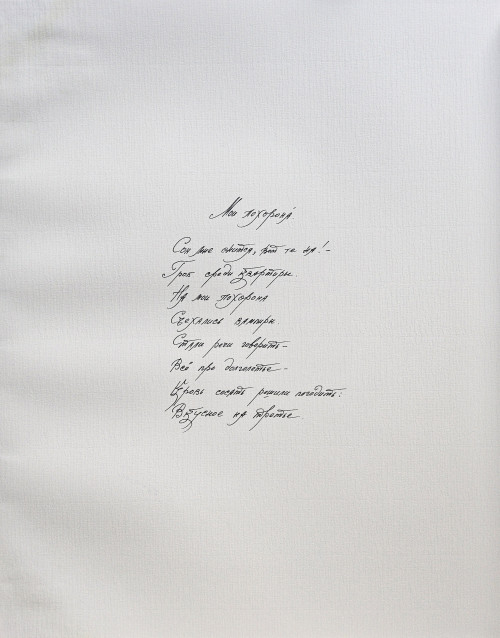 Мои похорона́
Сон мне снится, вот те на! –
Гроб среди квартиры.
На мои похорона
Съехались вампиры.
Стали речи говорить –
Всё про долголетье –
Кровь сосать решили погодить:
Вкусное на третье.